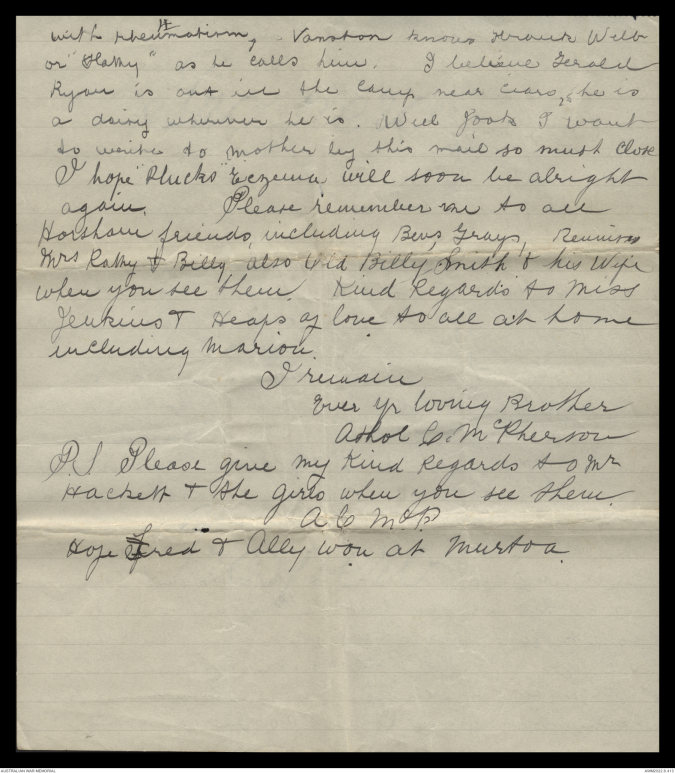 14
with rheumatism, Vanston knows Frank Webb
or "Hatty" as he calls him. I believe Gerald
Ryan is out in the camp near Cairo, he is
a daisy wherever he is. Well Toots I want
to write to mother by this mail so must close
I hope "Plucks" Eczema will soon be alright
again. Please remember me to all
Horsham friends, including Bens, Grays,
Mrs Ratty & Billy, also Wid Billy Smith & his Wife
when you see them. Kind Regards to Miss
Jenkins & Heaps of love to all at home
including Marion.
I remain
Ever yr loving Brother
Athol C. McPherson
P.S Please give my Kind Regards to Mr
Hackett & the girls when you see them.
A C McP
Hope Fred & Ally won at Murtoa.
AUSTRALIAN WAR MEMORIAL